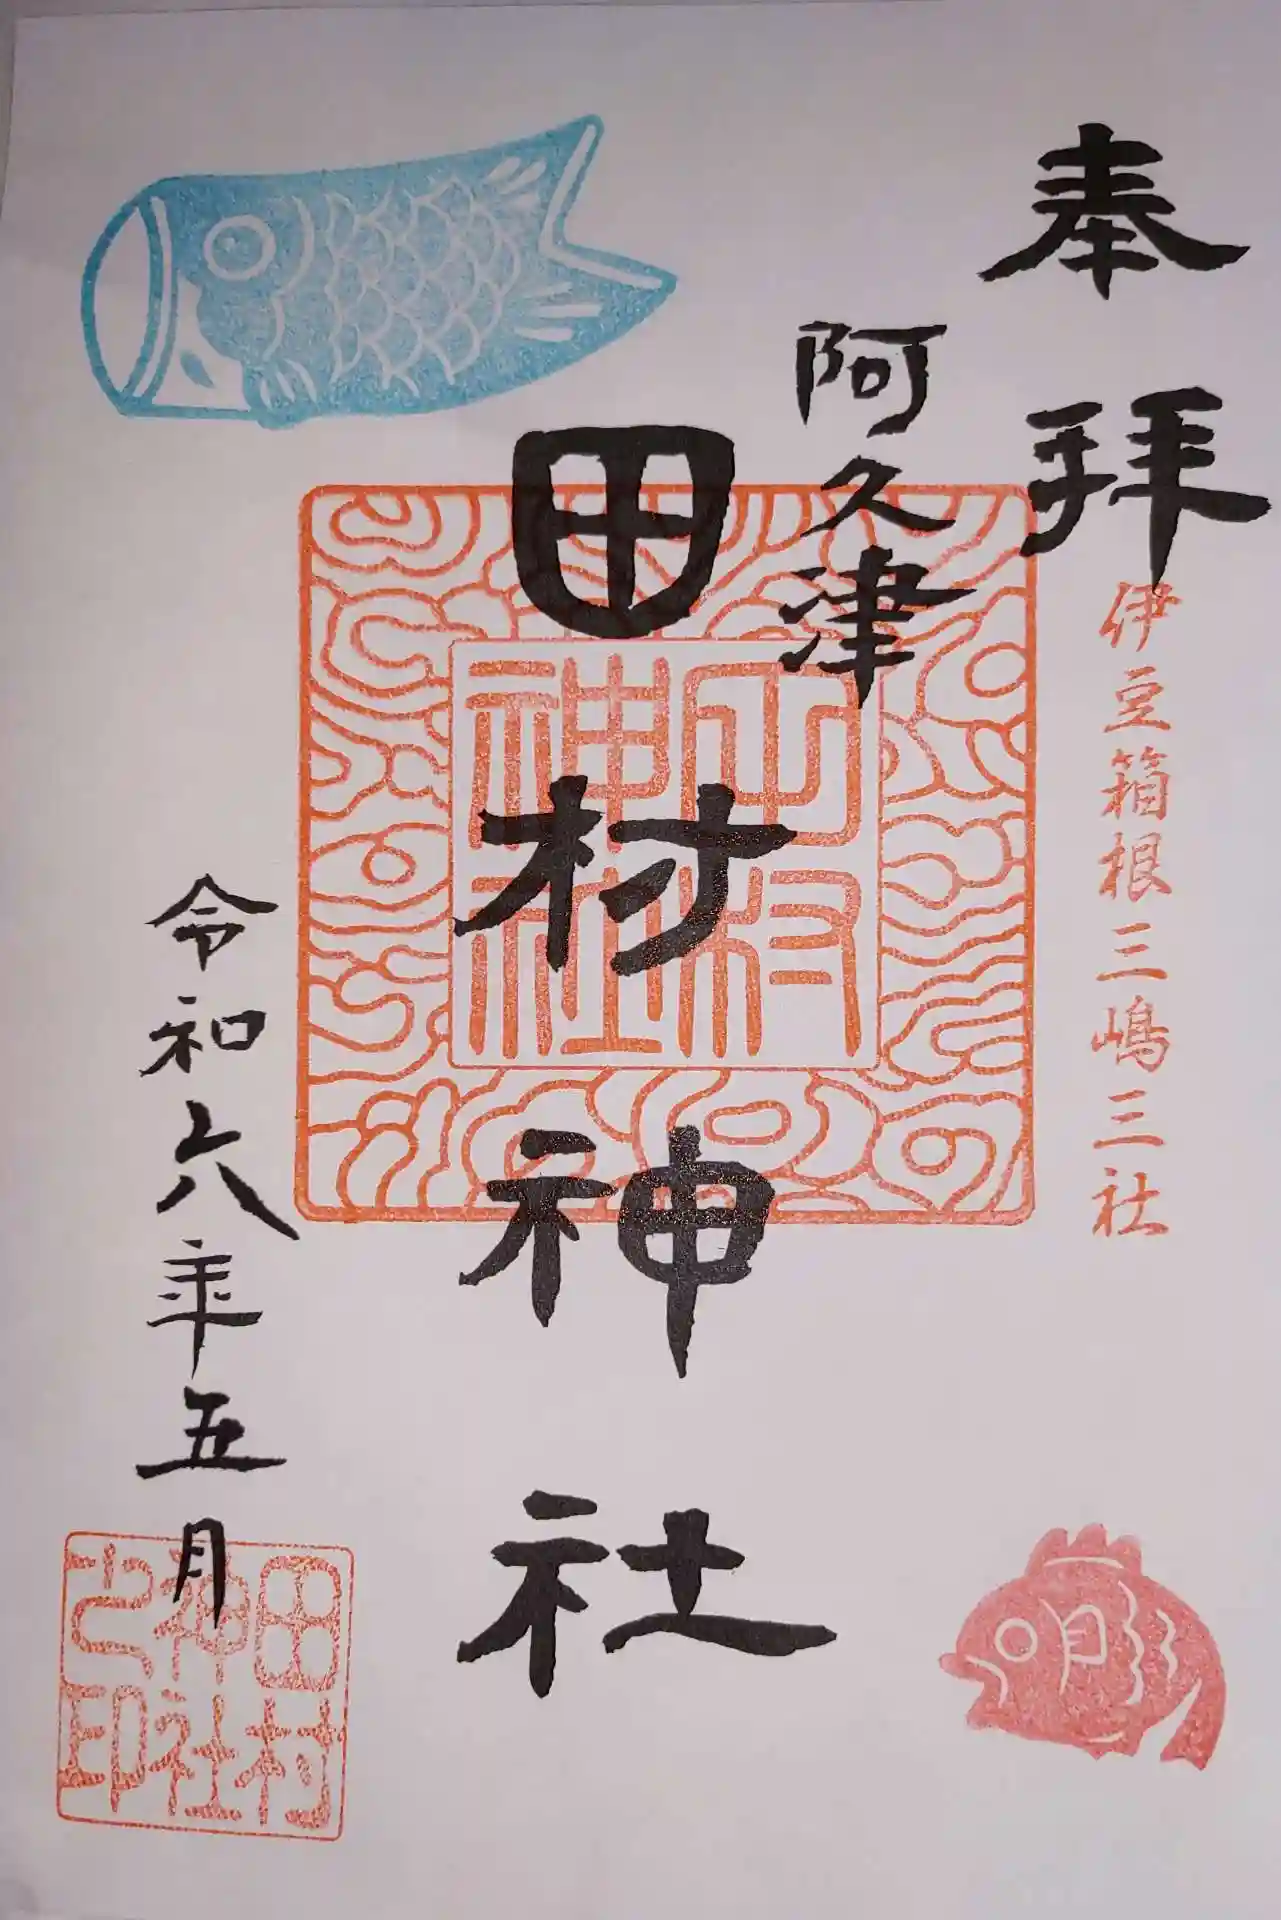 奉拝
伊豆箱根三嶋三社
阿久津
田村神社
令和六年五月
田村
神社
之印